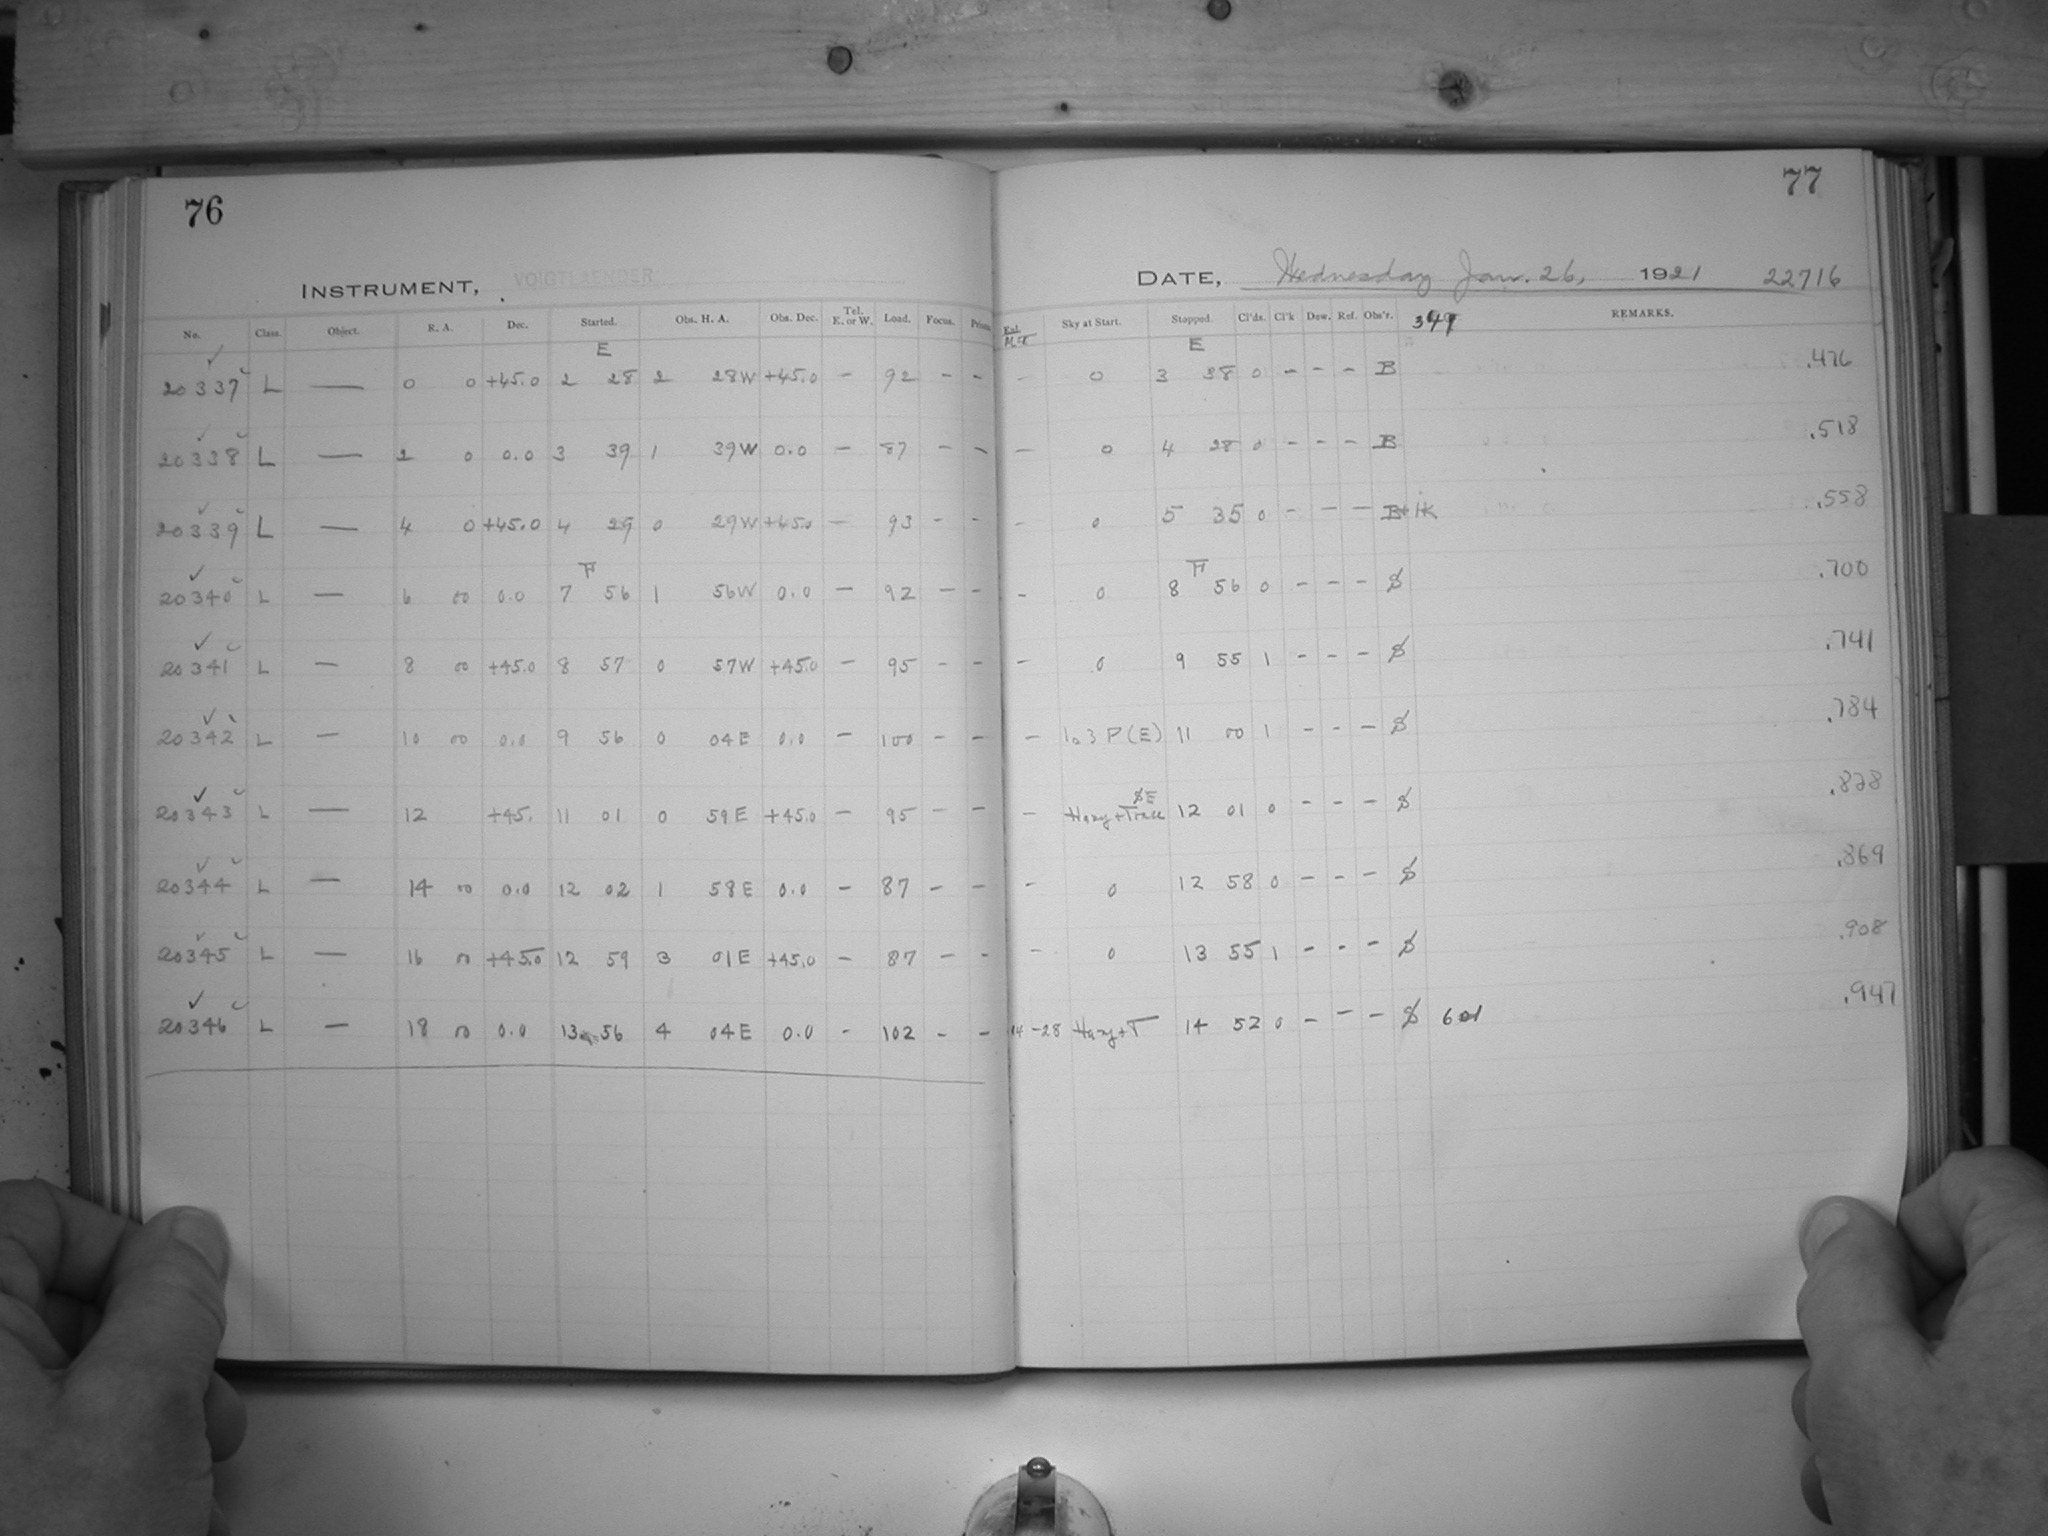 76
INSTRUMENT, VOIGTLAENDER
No. Class. Object. R. A. Dec. Started. Obs. H. A. Obs. Dec. Tel. E. or W. Load. Focus.
E
20337 L — 0 0 +45.0 2 28 2 28W +45.0 — 92 - -
20338 L — 2 0 0.0 3 39 1 39W 0.0 — 87 - -
20339 L — 4 0 +45.0 4 29 0 29W +45.0 — 93 - -
F
20340 L — 6 00 0.0 7 56 1 56W 0.0 — 92 - -
20341 L — 8 00 +45.0 8 57 0 57W +45.0 — 95 - -
20342 L — 10 00 0.0 9 56 0 04E 0.0 — 100 - -
20343 L — 12 +45. 11 01 0 59E +45.0 — 95 - -
20344 L — 14 00 0.0 12 02 1 58E 0.0 — 87 - -
20345 L — 16 00 +45.0 12 59 3 01E +45.0 — 87 - -
20346 L — 18 00 0.0 13 56 4 04E 0.0 - 102 - -
77
DATE, Wednesday Jan. 26, 1921 22716
Sky at Start. Stopped. Cl'ds. Cl'k Dew. Ref. Obs'r. REMARKS.
E
- 0 3 38 0 - - - B .476
- 0 4 28 0 - - - B .518
- 0 5 35 0 - - - B+IK .558
F
- 0 8 56 0 - - - S .700
- 0 9 55 1 - - - S .741
- P (E) 11 00 1 - - - S .784
SE
- Hazy + 12 01 0 - - - S .828
- 0 12 58 0 - - - S .869
- 0 13 55 1 - - - S .908
14-28 Hazy + T 14 52 0 - - - S .947